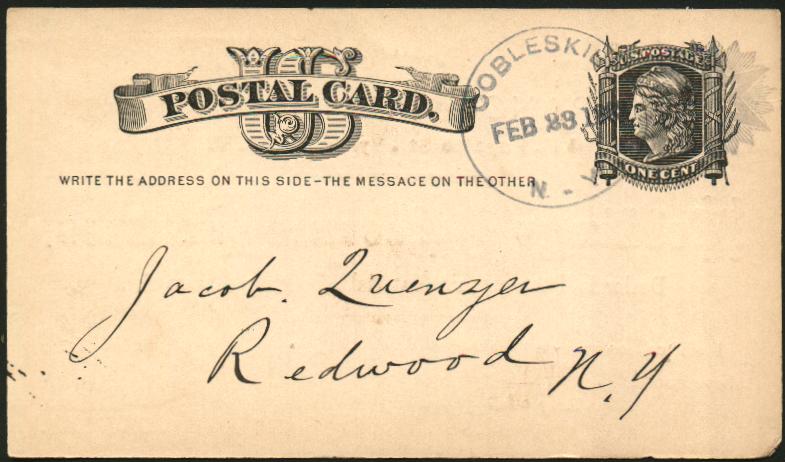 US
POSTAL CARD.
WRITE THE ADDRESS ON THIS SIDE-THE MESSAGE ON THE OTHER
COBLESKI
FEB 23
N.Y
U.S. POSTAGE
ONE CENT
Jacob. Quenzer
Redwood N.Y